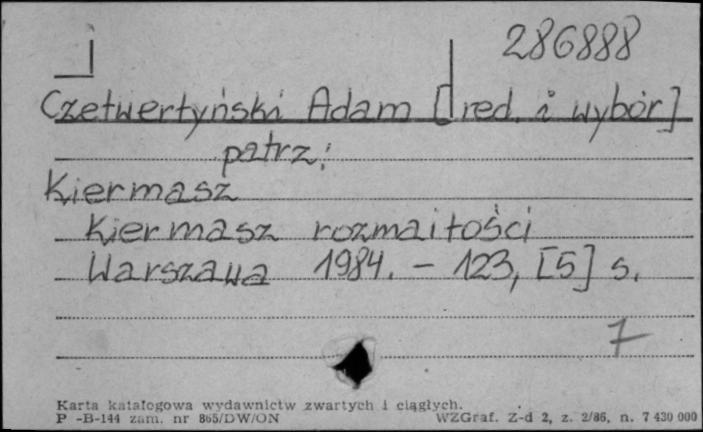 286888
Czetwertyński Adam [red. i wybór]
patrz:
Kiermasz
Kiermasz rozmaitości
Warszawa 1984. - 123, [5] s.
7
Karta katalogowa wydawnictw zwartych i ciągłych.
P -B-144 zam. nr 865/DW/ON WZGraf. Z-d 2, z. 2/86, n. 7 430 000